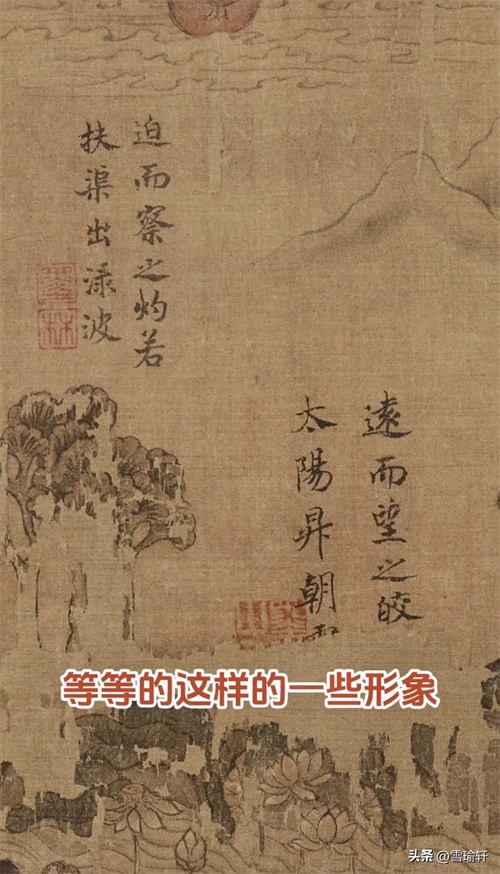 遠而望之皎
太陽昇朝
迫而察之灼若
扶渠出渌波
等等的这样的一些形象
头条 @雪瑜轩